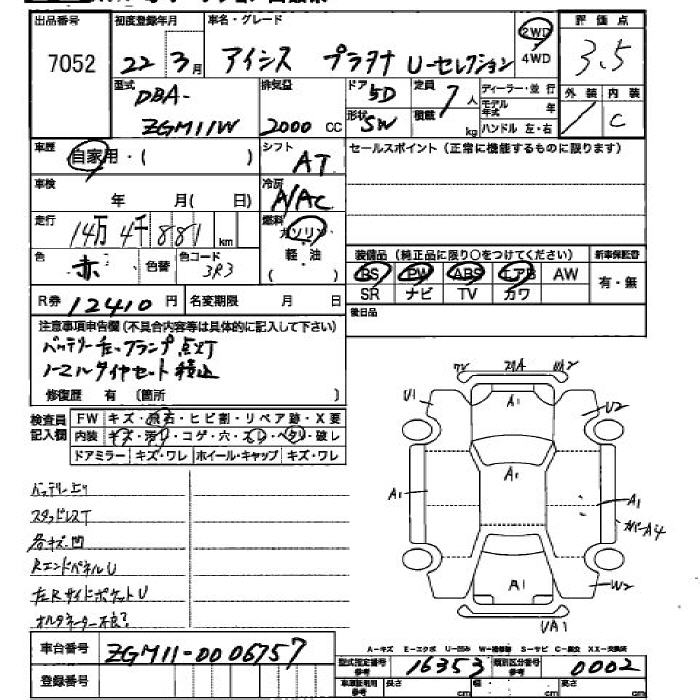 出品番号
7052
初度登録年月
22年 3月
車名・グレード
アイシス プラタナ U-セレクション
2WD
4WD
評価点
3.5
外装 内装
/ C
型式
DBA-
ZGM11W
排気量
2000 CC
ドア 5D
形状 SW
定員 7人
積載 kg
ディーラー・並行
モデル年式 年
ハンドル 左・右
車歴
自家用・( )
シフト
AT
セールスポイント(正常に機能するものに限ります)
車検
年 月( 日)
冷房
A/AC
走行
14万4千881 km
燃料
ガソリン
軽・油
( )
色
赤
色替
色コード
3R3
装備品(純正品に限り○をつけてください)
新車保証書
PS PW ABS エアB AW
SR ナビ TV カワ
有・無
R券 12410円
名変期限 月 日
後日品
注意事項申告欄(不具合内容等は具体的に記入して下さい)
バッテリー左ランプ点灯
ノーマルタイヤセット積込
修復歴 有 〔箇所 〕
検査員
記入欄
FW キズ・飛石・ヒビ割・リペア跡・X要
内装 キズ・汚れ・コゲ・穴・スレ・ヘタリ・破レ
ドアミラー キズ・ワレ ホイール・キャップ キズ・ワレ
バッテリー上り
スタッドレスT
各キズ凹
RエンドパネルU
左RサイドポケットU
オルタネーター不良?
A1
U1
U2
A1
A1
A1
カバーA4
A1
W2
UA1
A-キズ E-エクボ U-凹み W-補修跡 S-サビ C-腐食 XX-交換済
車台番号
ZGM11-0006757
登録番号
型式指定番号
参考
16353
類別区分番号
参考
0002
車庫証明用
参考
長さ cm 幅 cm 高さ cm